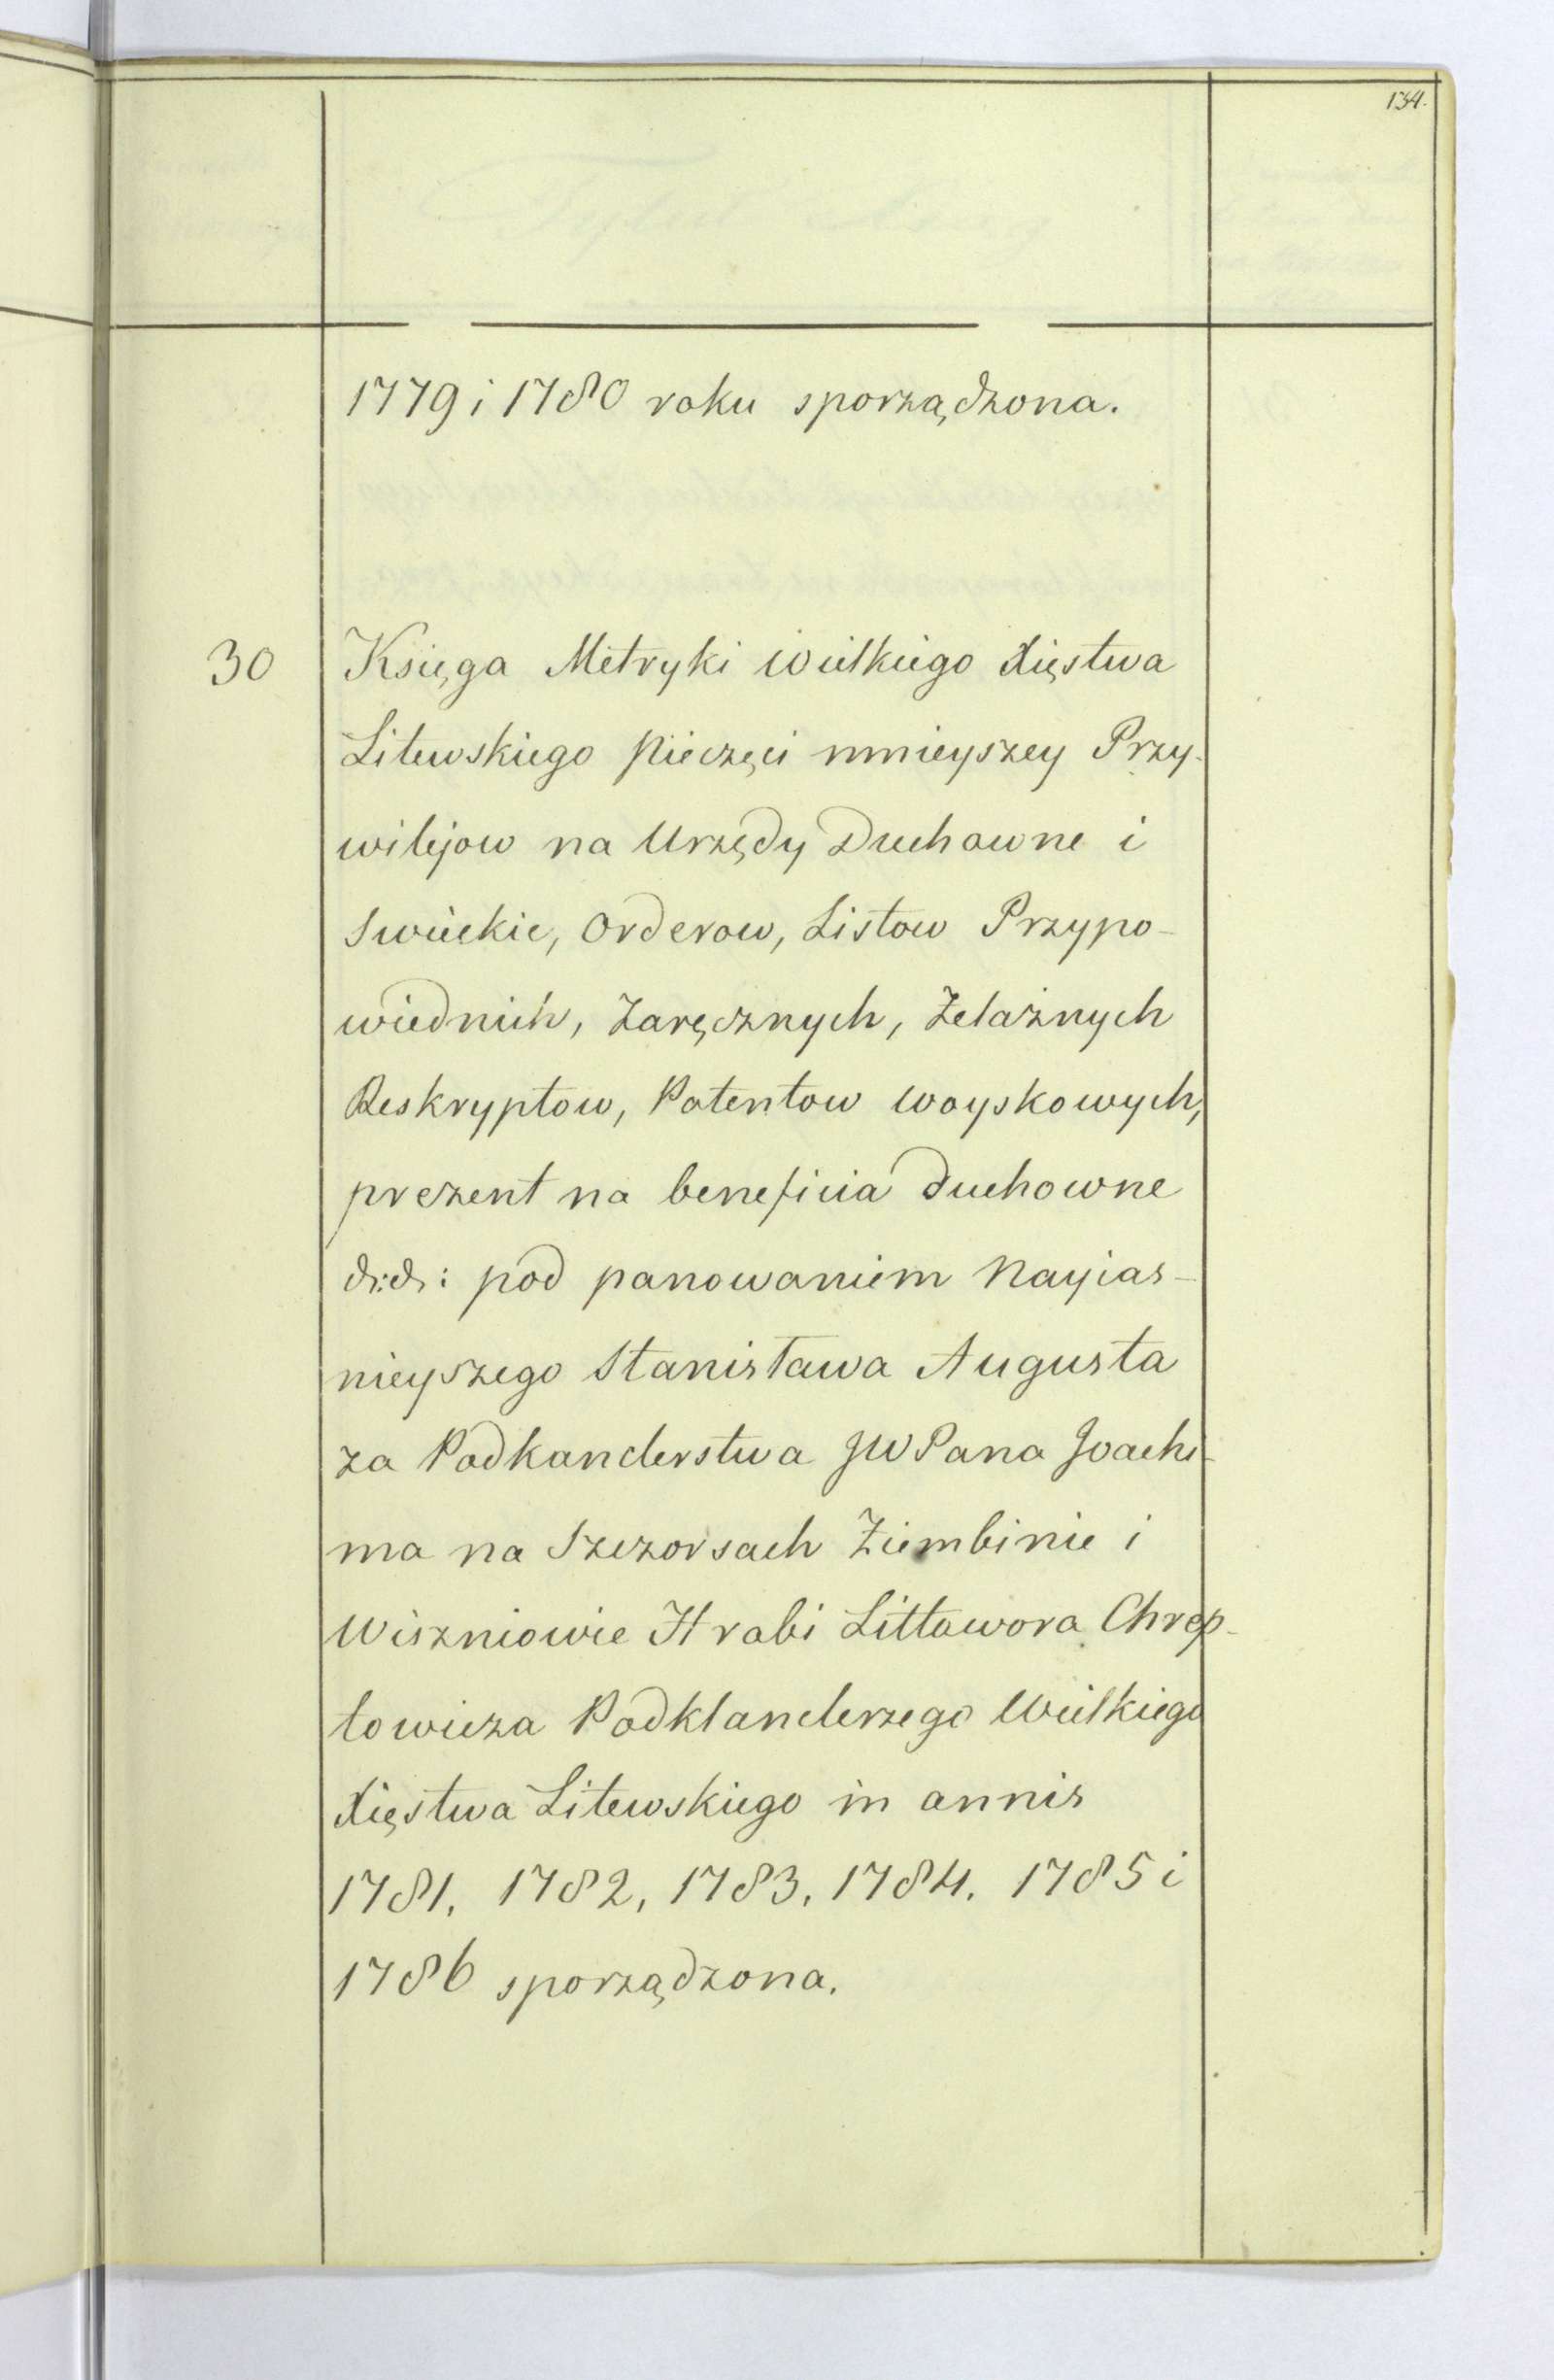 134.
1779 i 1780 roku sporządzona.
30 Księga Metryki Wielkiego Xięstwa
Litewskiego Pieczęci mnieyszey Przy-
wilejow na Urzędy Duchowne i
Swieckie, Orderow, Listow Przypo-
wiednich, Zaręcznych, Żelaznych
Reskryptow, Patentow Woyskowych,
prezent na beneficia Duchowne
&:&: pod panowaniem Nayias-
nieyszego Stanisława Augusta
za Podkanclerstwa JW Pana Joachi-
ma na Szczorsach Ziembinie i
Wiszniowie Hrabi Littawora Chrep-
towicza Podklanclerzego Wielkiego
Xięstwa Litewskiego in annis
1781, 1782, 1783, 1784, 1785 i
1786 sporządzona.